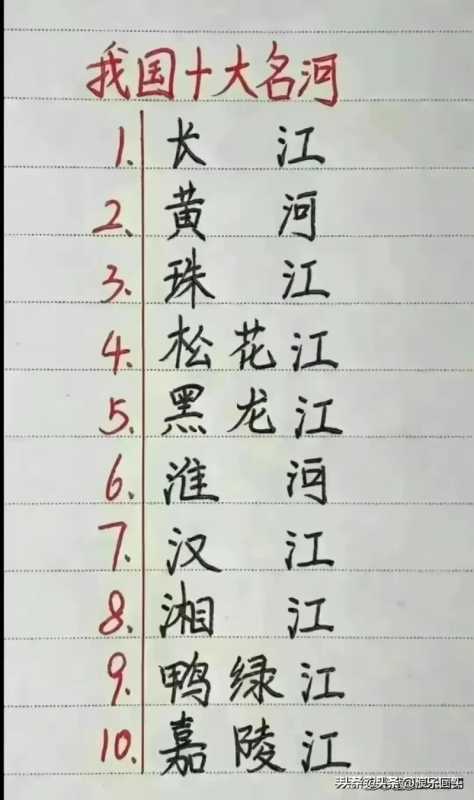 我国十大名河
1. 长江
2. 黄河
3. 珠江
4. 松花江
5. 黑龙江
6. 淮河
7. 汉江
8. 湘江
9. 鸭绿江
10. 嘉陵江
头条@娱乐画纸